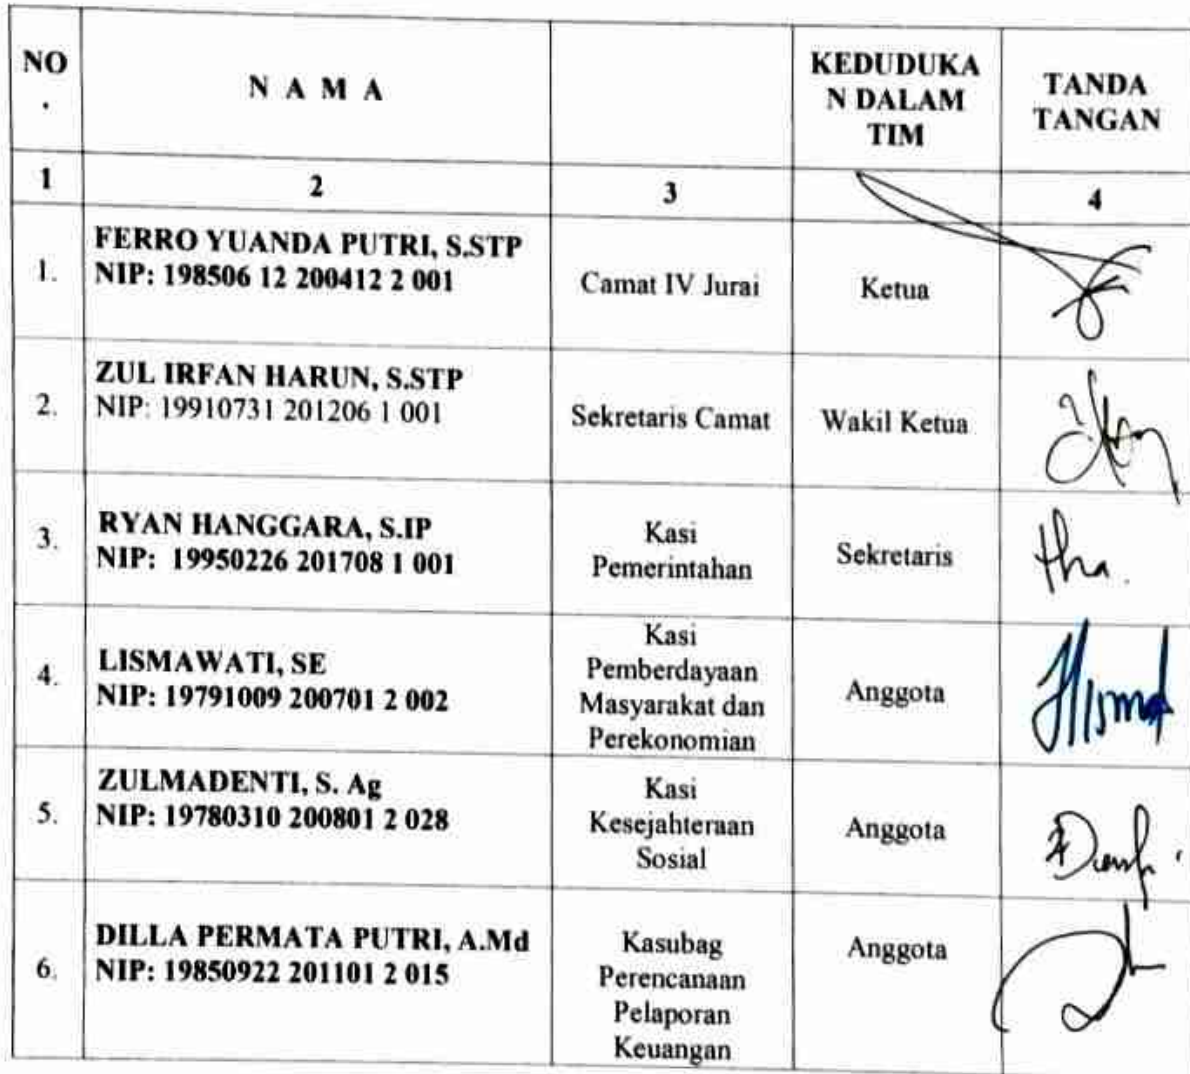 NO
.
N A M A
KEDUDUKA
N DALAM
TIM
TANDA
TANGAN
1
2
3
4
1.
FERRO YUANDA PUTRI, S.STP
NIP: 198506 12 200412 2 001
Camat IV Jurai
Ketua
2.
ZUL IRFAN HARUN, S.STP
NIP: 19910731 201206 1 001
Sekretaris Camat
Wakil Ketua
3.
RYAN HANGGARA, S.IP
NIP: 19950226 201708 1 001
Kasi
Pemerintahan
Sekretaris
4.
LISMAWATI, SE
NIP: 19791009 200701 2 002
Kasi
Pemberdayaan
Masyarakat dan
Perekonomian
Anggota
5.
ZULMADENTI, S. Ag
NIP: 19780310 200801 2 028
Kasi
Kesejahteraan
Sosial
Anggota
6.
DILLA PERMATA PUTRI, A.Md
NIP: 19850922 201101 2 015
Kasubag
Perencanaan
Pelaporan
Keuangan
Anggota